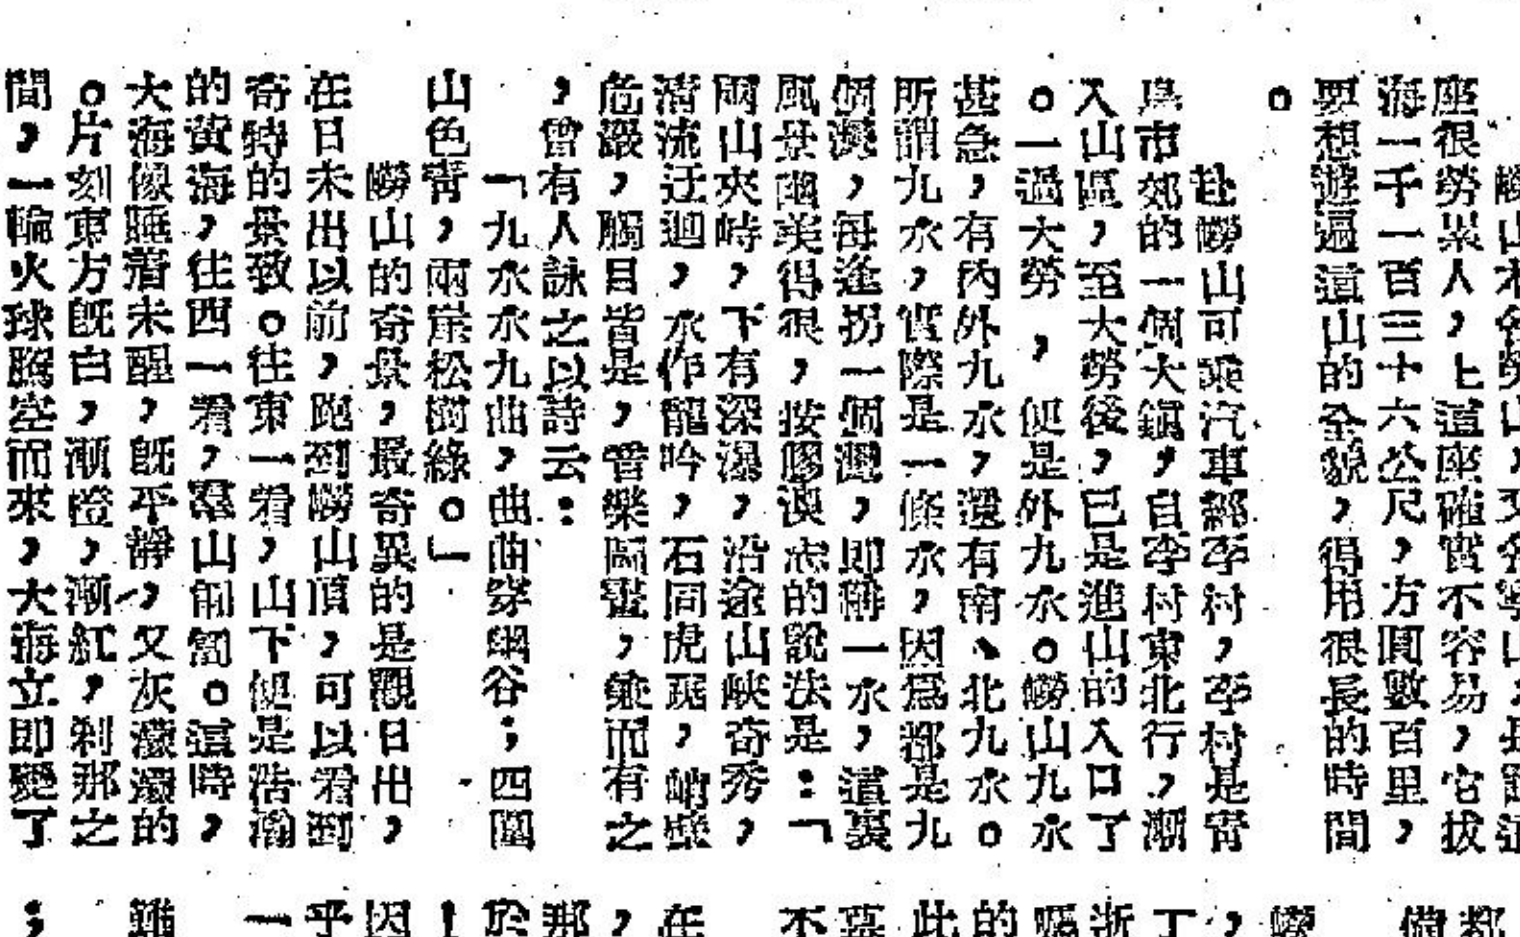 嶗山本名勞山,又名
座很勞累人,上這座確實不容易,它拔
海一千一百三十六公尺,方圓數百里,
要想遊遍這山的全貌,得用很長的時間
。
赴嶗山可乘汽車經李村,李村是青
島市郊的一個大鎮,自李村東北行,漸
入山區,至大勞後,已是進山的入口了
。一過大勞,便是外九水。嶗山九水
甚急,有內外九水,還有南、北九水。
所謂九水,實際是一條水,因為都是九
個澳,每逢拐一個彎,即稱一水,這裏
風景幽美得很,按膠澳志的說法是:「
兩山夾峙,下有深瀑,沿途山峽奇秀,
清流迂迴,水作龍吟,石同虎踞,峭壁
危巖,觸目皆是,昔樂園,兼而有之
,曾有人詠之以詩云:
「九水水九曲,曲曲穿幽谷;四圍
山色青,兩崖松樹綠。」
嶗山的奇景,最奇異的是觀日出,
在日未出以前,跑到嶗山頂,可以看到
奇特的景致。往東一看,山下便是浩瀚
的黃海,往西一看,羣山匍匐。這時,
大海像睡著未醒,既平靜,又灰濛濛的
。片刻東方既白,漸橙,漸紅,剎那之
間,一輪火球騰空而來,大海立即變了